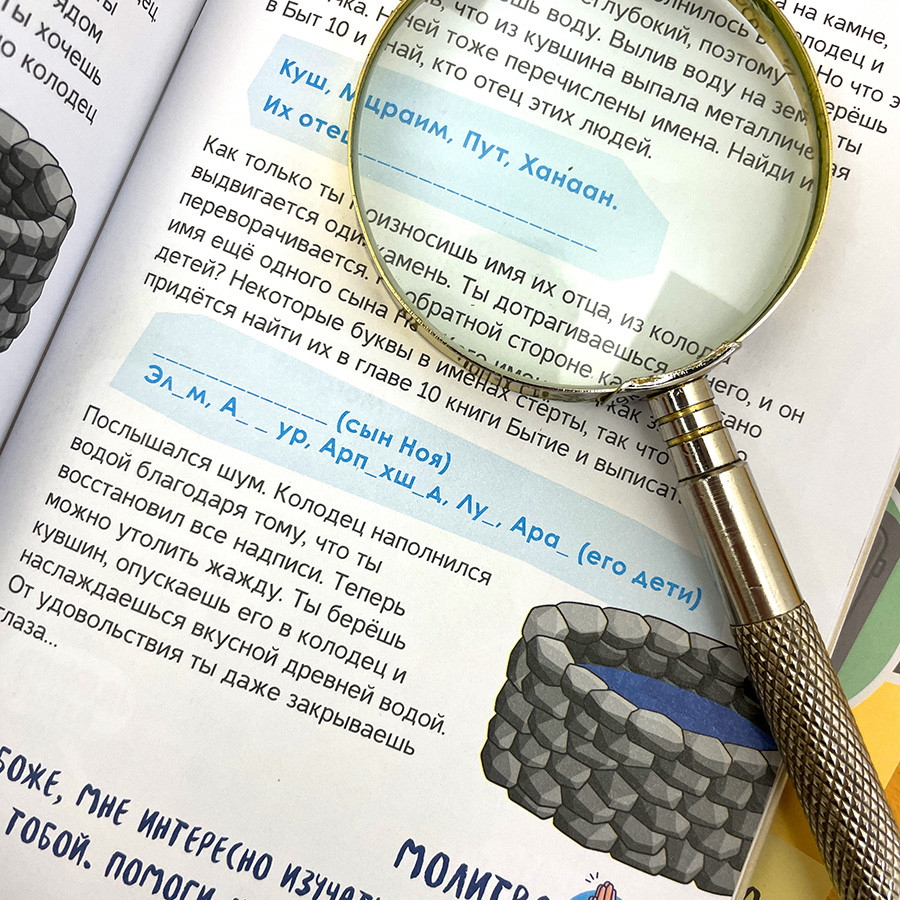 ядом
ты хочешь
колодец
на камне,
глубокий, поэтому
воду. Вылив воду на
что из кувшина выпала
в Быт 10 и
ней тоже перечислены имена. Найди и
кто отец этих людей.
Куш, Мицраим, Пут, Ханаан.
Их отец
Как только ты произносишь имя их отца, из
выдвигается один камень. Ты дотрагиваешься
переворачивается. обратной стороне
имя ещё одного сына
детей? Некоторые буквы в именах стёрты, так что
придётся найти их в главе 10 книги Бытие и выписать
____________ (сын Ноя)
Эл_м, А_ _ ур, Арп_хш_д, Лу_, Ара_ (его дети)
Послышался шум. Колодец наполнился
водой благодаря тому, что ты
восстановил все надписи. Теперь
можно утолить жажду. Ты берёшь
кувшин, опускаешь его в колодец и
наслаждаешься вкусной древней водой.
От удовольствия ты даже закрываешь
глаза...
МОЛИТВА
БОЖЕ, МНЕ ИНТЕРЕСНО ИЗУЧАТЬ
ТОБОЙ. ПОМОГИ